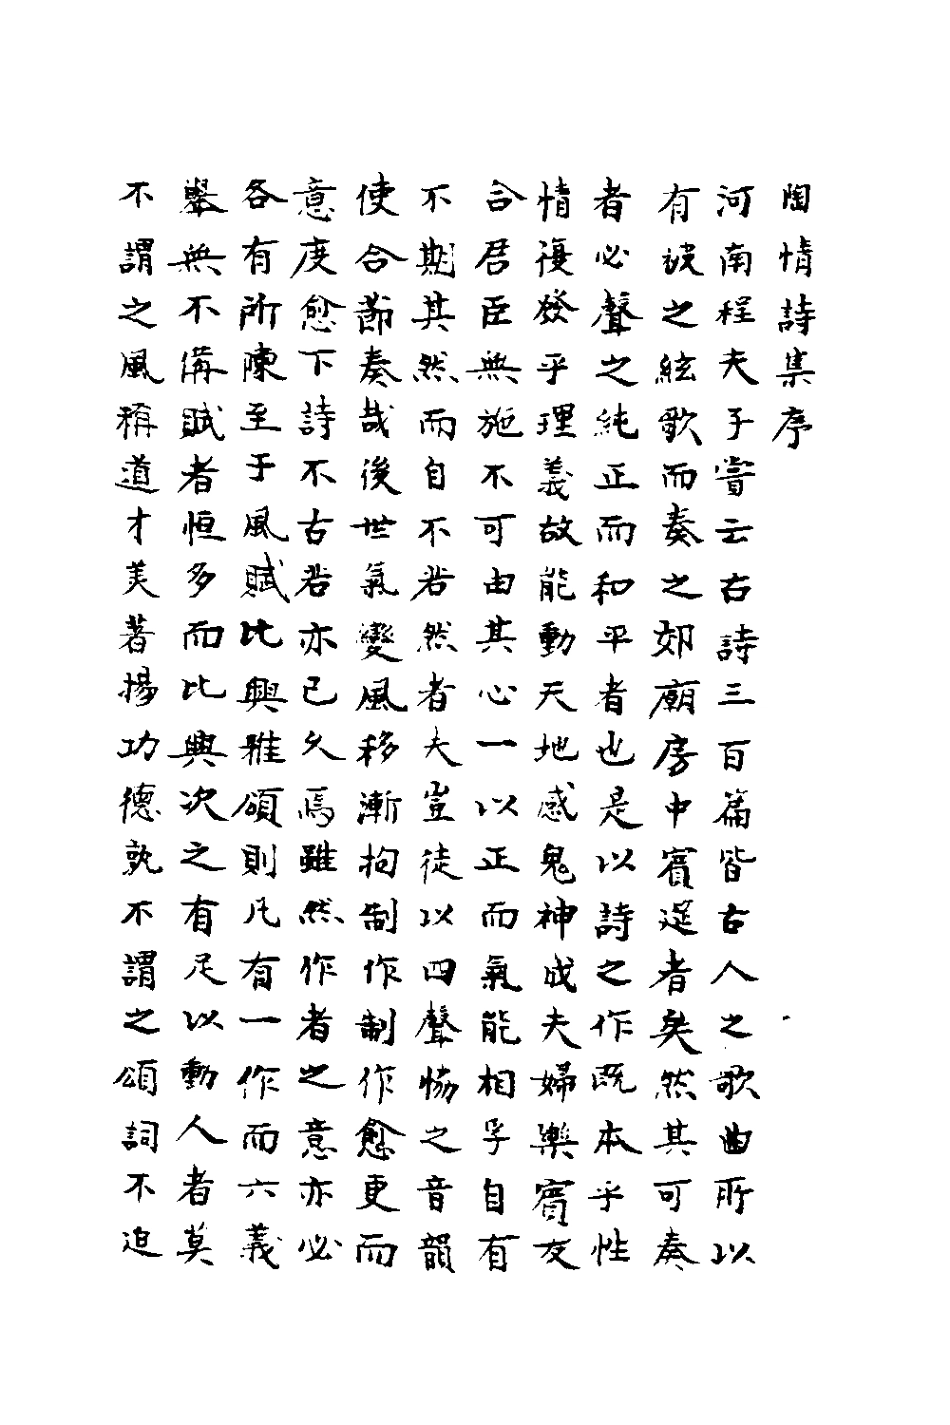 陶情詩集序
河南程夫子嘗云古詩三百篇皆古人之歌曲所以
有被之絃歌而奏之郊廟房中賓筵者矣然其可奏
者必聲之純正而和平者也是以詩之作既本乎性
情復發乎理義故能動天地感鬼神成夫婦樂賓友
合君臣無施不可由其心一以正而氣能相孚自有
不期其然而自不若然者夫豈徒以四聲恊之音韻
使合節奏哉後世氣變風移漸拘制作制作愈更而
意度愈下詩不古若亦已久焉雖然作者之意亦必
各有所陳至于風賦比興雅頌則凡有一作而六義
舉無不備賦者恒多而比興次之有足以動人者莫
不謂之風稱道才美著揚功德孰不謂之頌詞不迫